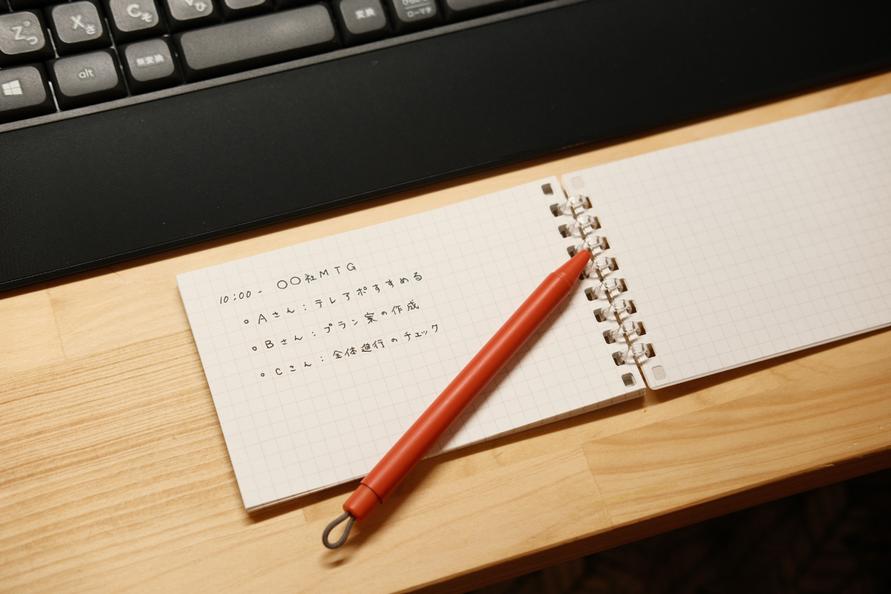 Z つ
X さ
C そ
V ひ
alt
無変換
変換
ローマ字
10:00- 〇〇社MTG
。Aさん：テレアポすすめる
。Bさん：プラン案の作成
。Cさん：全体進行のチェック